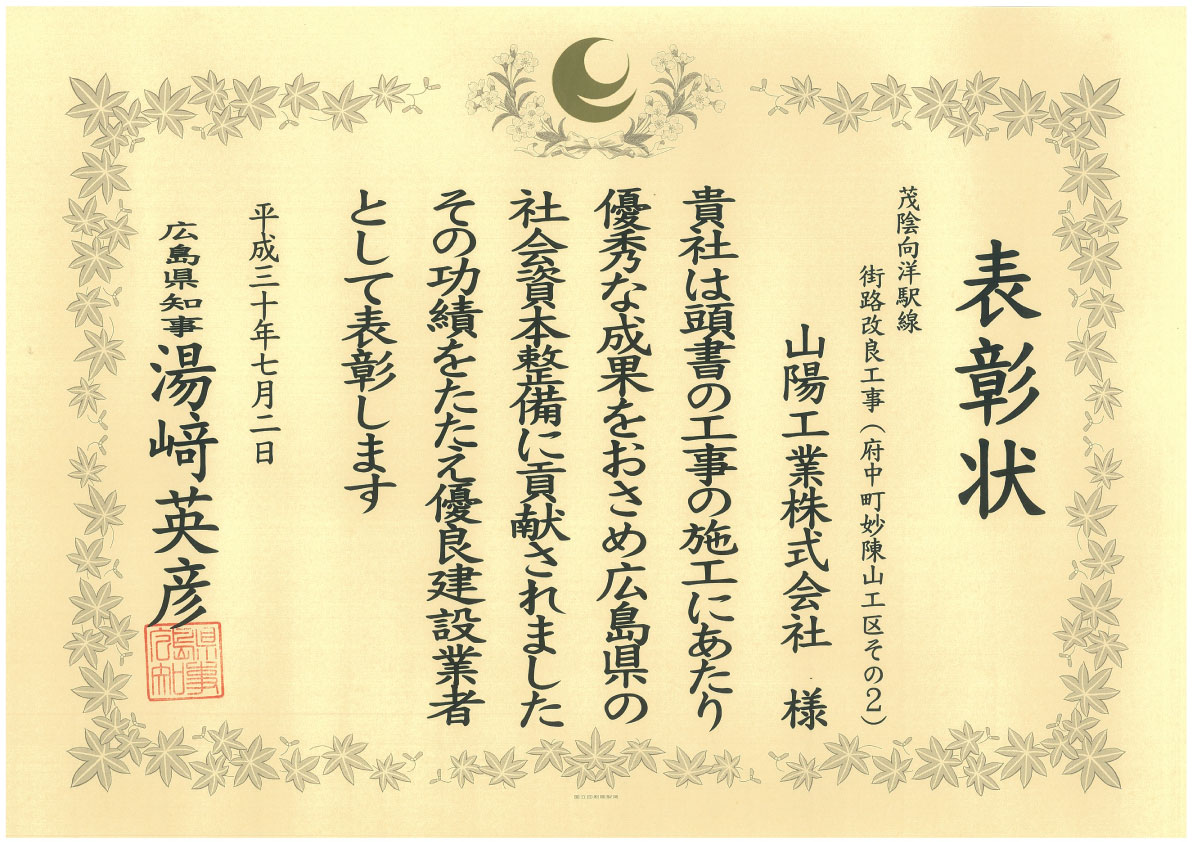 表彰状
茂陰向洋駅線
街路改良工事(府中町妙陳山工区その2)
山陽工業株式会社 様
貴社は頭書の工事の施工にあたり
優秀な成果をおさめ広島県の
社会資本整備に貢献されました
その功績をたたえ優良建設業者
として表彰します
平成三十年七月二日
広島県知事 湯﨑英彦